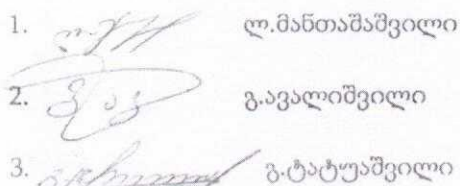 1. ლ.მანთაშაშვილი
2. გ.ავალიშვილი
3. გ.ტატუაშვილი